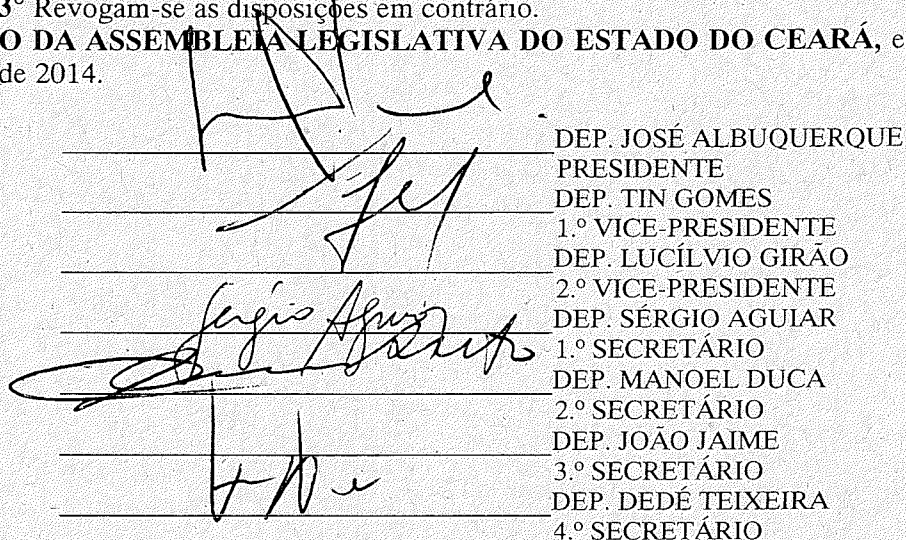 3º Revogam-se as disposições em contrário.
O DA ASSEMBLEIA LEGISLATIVA DO ESTADO DO CEARÁ, e
de 2014.
DEP. JOSÉ ALBUQUERQUE
PRESIDENTE
DEP. TIN GOMES
1.º VICE-PRESIDENTE
DEP. LUCÍLVIO GIRÃO
2.º VICE-PRESIDENTE
Sérgio Aguiar
DEP. SÉRGIO AGUIAR
1.º SECRETÁRIO
DEP. MANOEL DUCA
2.º SECRETÁRIO
DEP. JOÃO JAIME
3.º SECRETÁRIO
DEP. DEDÉ TEIXEIRA
4.º SECRETÁRIO